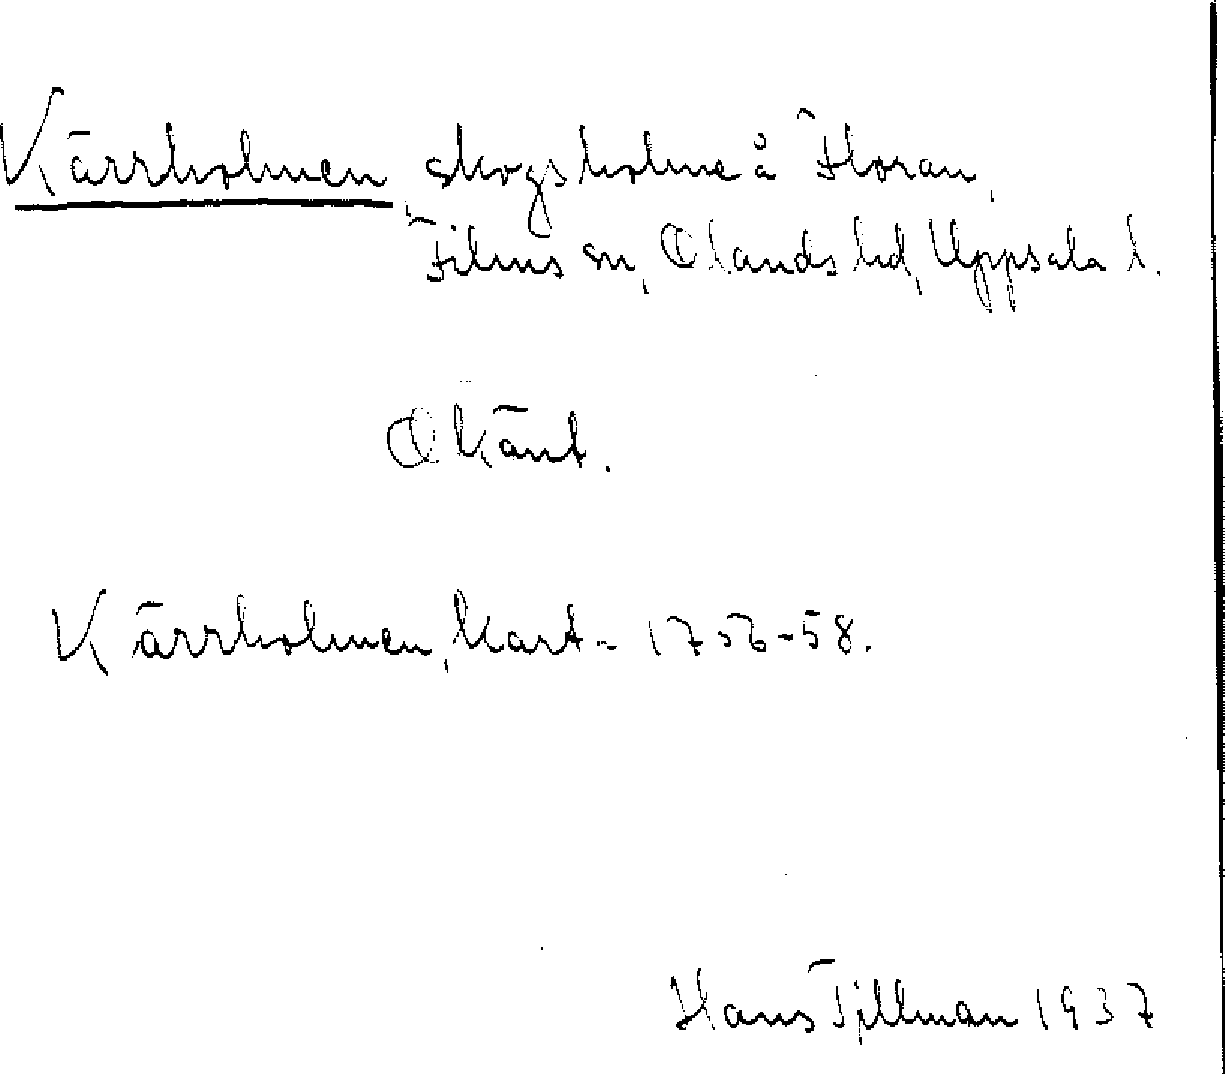 Kärrholmen skogsholme å Floran,
Films sn, Olands hd, Uppsala l.
Okänt.
Kärrholmen, Kart- 1756-58.
Hans Tjillman 1937